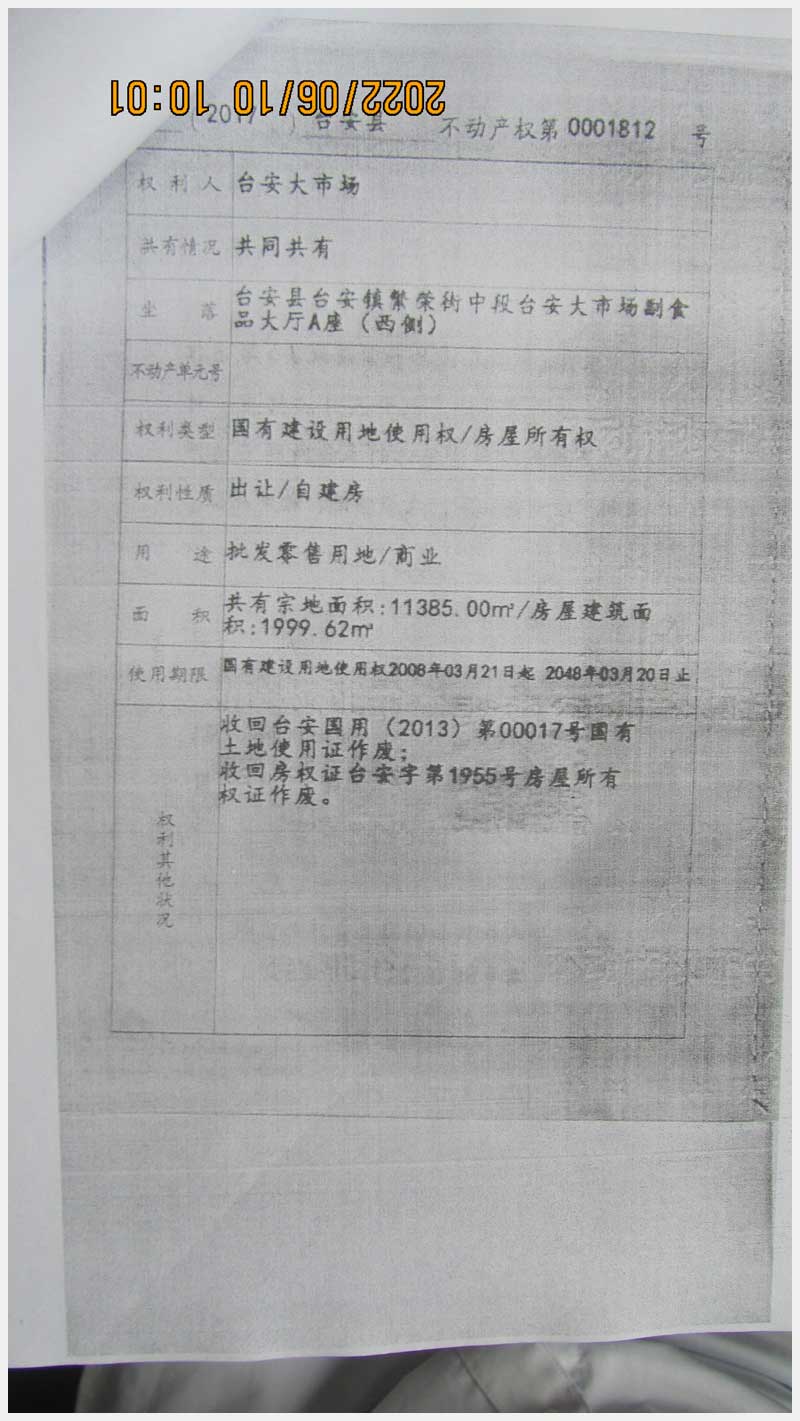 2022/06/10 10:01
(2017 ) 台安县 不动产权第0001812 号
权利人 台安大市场
共有情况 共同共有
坐落 台安县台安镇繁荣街中段台安大市场副食
品大厅A座（西侧）
不动产单元号
权利类型 国有建设用地使用权/房屋所有权
权利性质 出让/自建房
用途 批发零售用地/商业
面积 共有宗地面积:11385.00㎡/房屋建筑面
积:1999.62㎡
使用期限 国有建设用地使用权2008年03月21日起 2048年03月20日止
权利其他状况 收回台安国用（2013）第00017号国有
土地使用证作废；
收回房权证台安字第1955号房屋所有
权证作废。